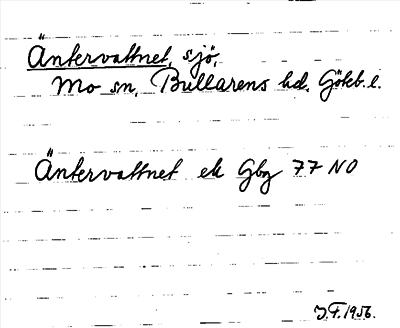 Äntervattnet, sjö,
Mo sn, Bullarens hd, Göteb. l.
Äntervattnet ek Gbg 77 NO
J.F. 1956.